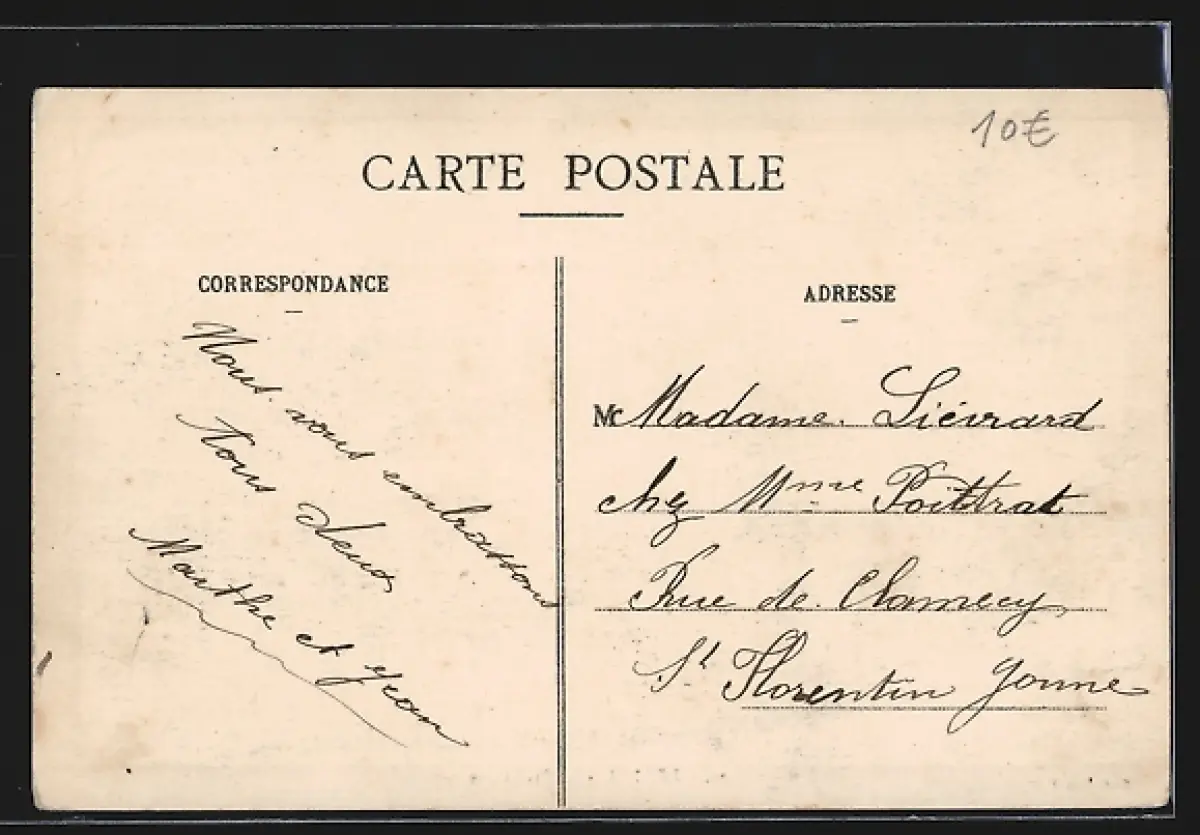 10€
CARTE POSTALE
CORRESPONDANCE
Nous vous embrassons
Tous deux
Marthe et Jean
ADRESSE
M Madame Liévrard
chez Mme Poittrat
Rue de Clamecy
St Florentin Yonne